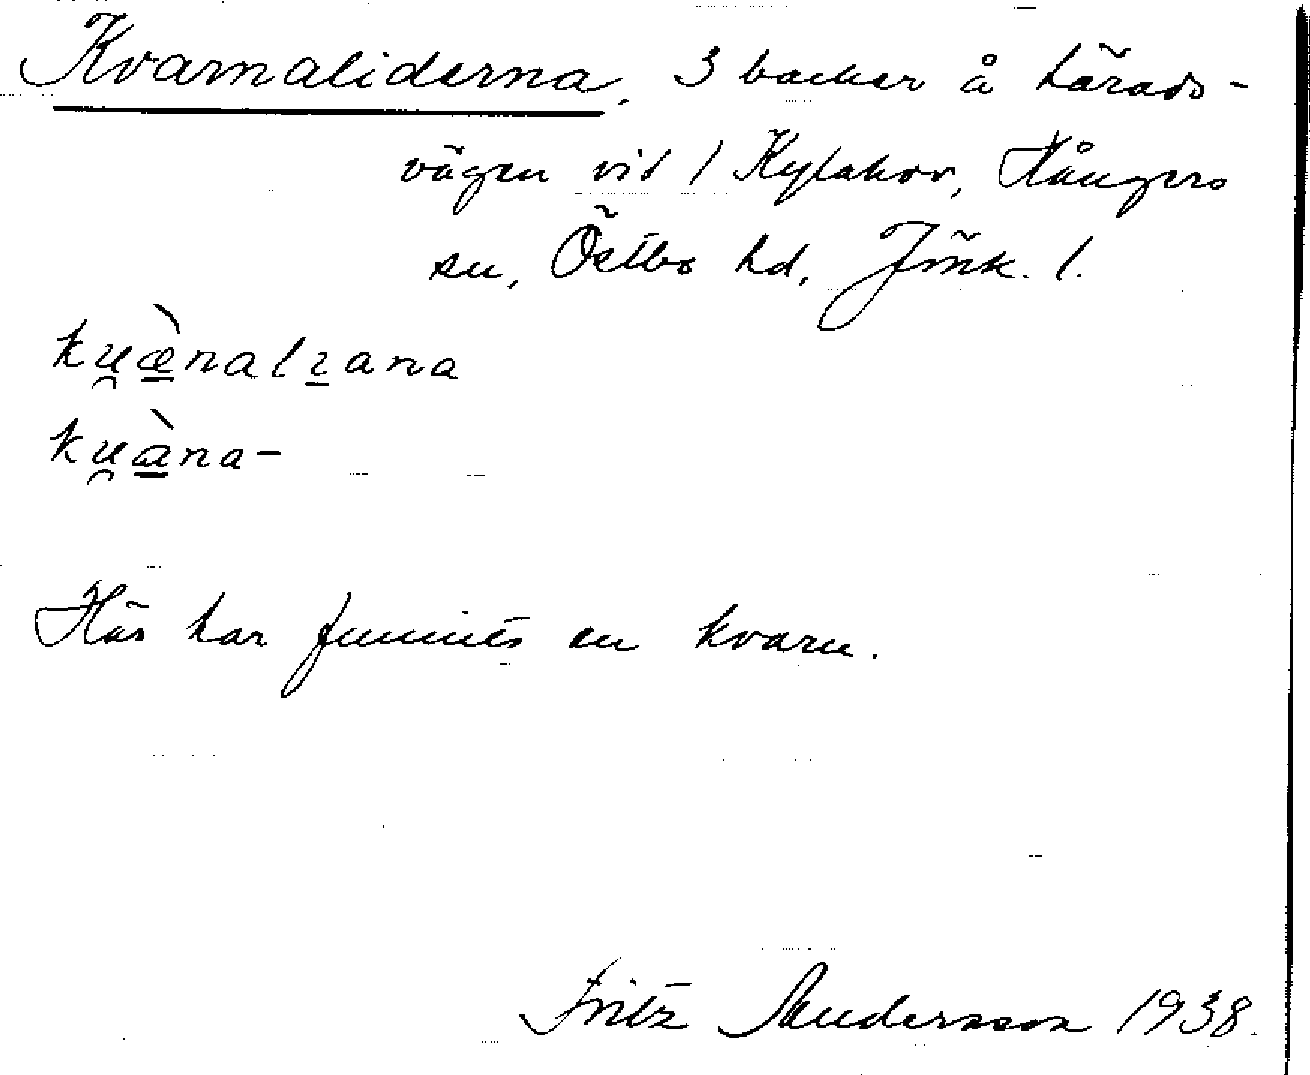 Kvarnaliderna, 3 backar å härads-
vägen vid / Kylahov, Hångers
sn, Östbo hd, Jönk. l.
ku̯æ̀nalɩana
ku̯àna-
Här har funnits en kvarn.
Fritz Andersson 1938.